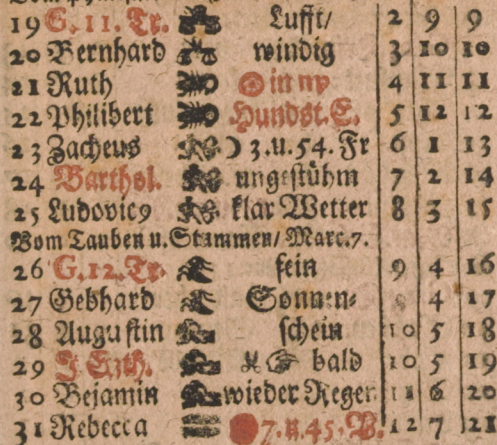 19 G. 11. Tr. Lufft/ 2 9 9
20 Bernhard windig 3 10 10
21 Ruth ☉ in ♍ 4 11 11
22 Philibert Hundst. E. 5 12 12
23 Zacheus ☽ 3. u. 54. Fr 6 1 13
24 Barthol. ungestühm 7 2 14
25 Ludovic9 klar Wetter 8 3 15
Vom Tauben u. Stummen/ Marc. 7.
26 G. 12. Tr. fein 9 4 16
27 Gebhard Sonnen⸗ 9 4 17
28 Augustin schein 10 5 18
29 J. Enth. bald 10 5 19
30 Bejamin wieder Regen 11 6 20
31 Rebecca 7. u. 45. V. 12 7 21